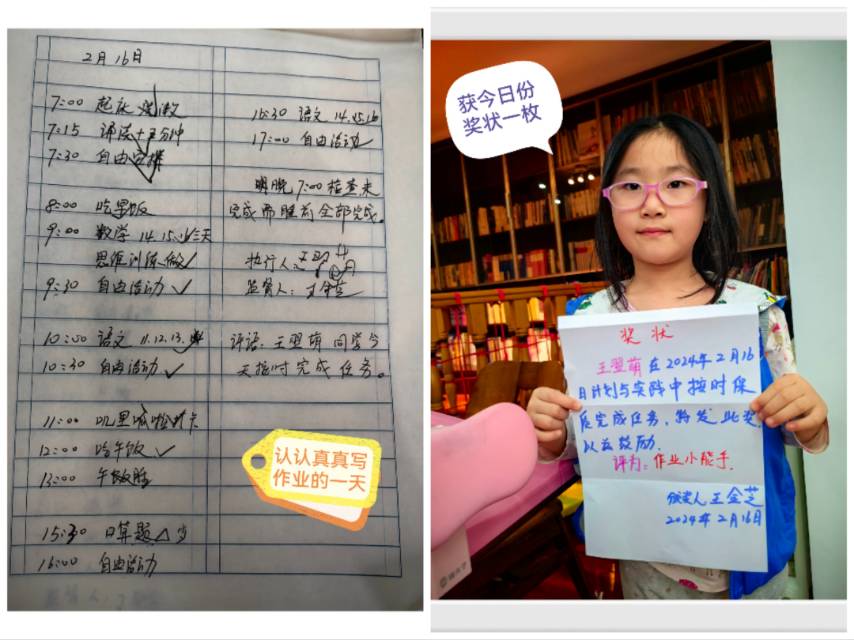 2月16日
7:00 起床 漱
7:15 诵读十五分钟
7:30 自由安排
8:00 吃早饭
9:00 数学 14.15.
思维训练
9:30 自由活动
10:00 语文 11.12.13.
10:30 自由活动
11:00 叽里呱啦打卡
12:00 吃午饭
13:00 午休
15:30 口算题
16:00 自由活动
16:30 语文 14.15.16
17:00 自由活动
明晚 7:00 检查未
完成而睡前全部完成。
执行人:王翌萌
监督人:王金芝
评语:王翌萌 同学今
天按时完成任务。
认认真真写
作业的一天
获今日份
奖状一枚
奖状
王翌萌在2024年2月16
日计划与实践中按时保
质完成任务,特发此奖,
以兹鼓励.
评为:作业小能手.
颁奖人 王金芝
2024年2月16日